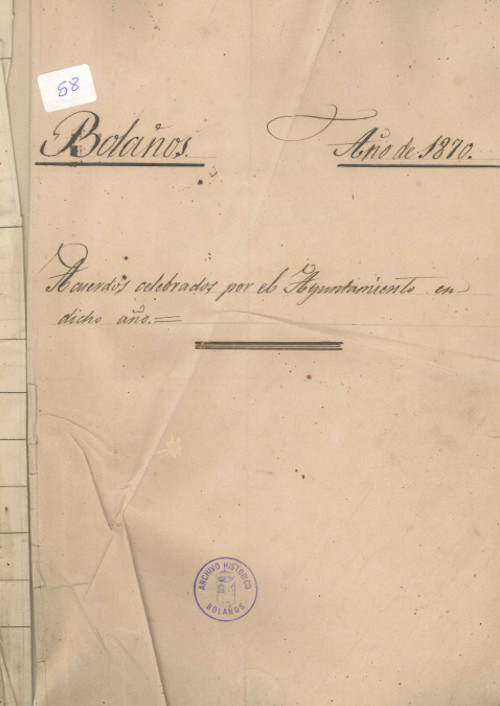 58
Bolaños. Año de 1870.
Acuerdos celebrados por el Ayuntamiento en
dicho año.=
ARCHIVO HISTORICO
BOLAÑOS